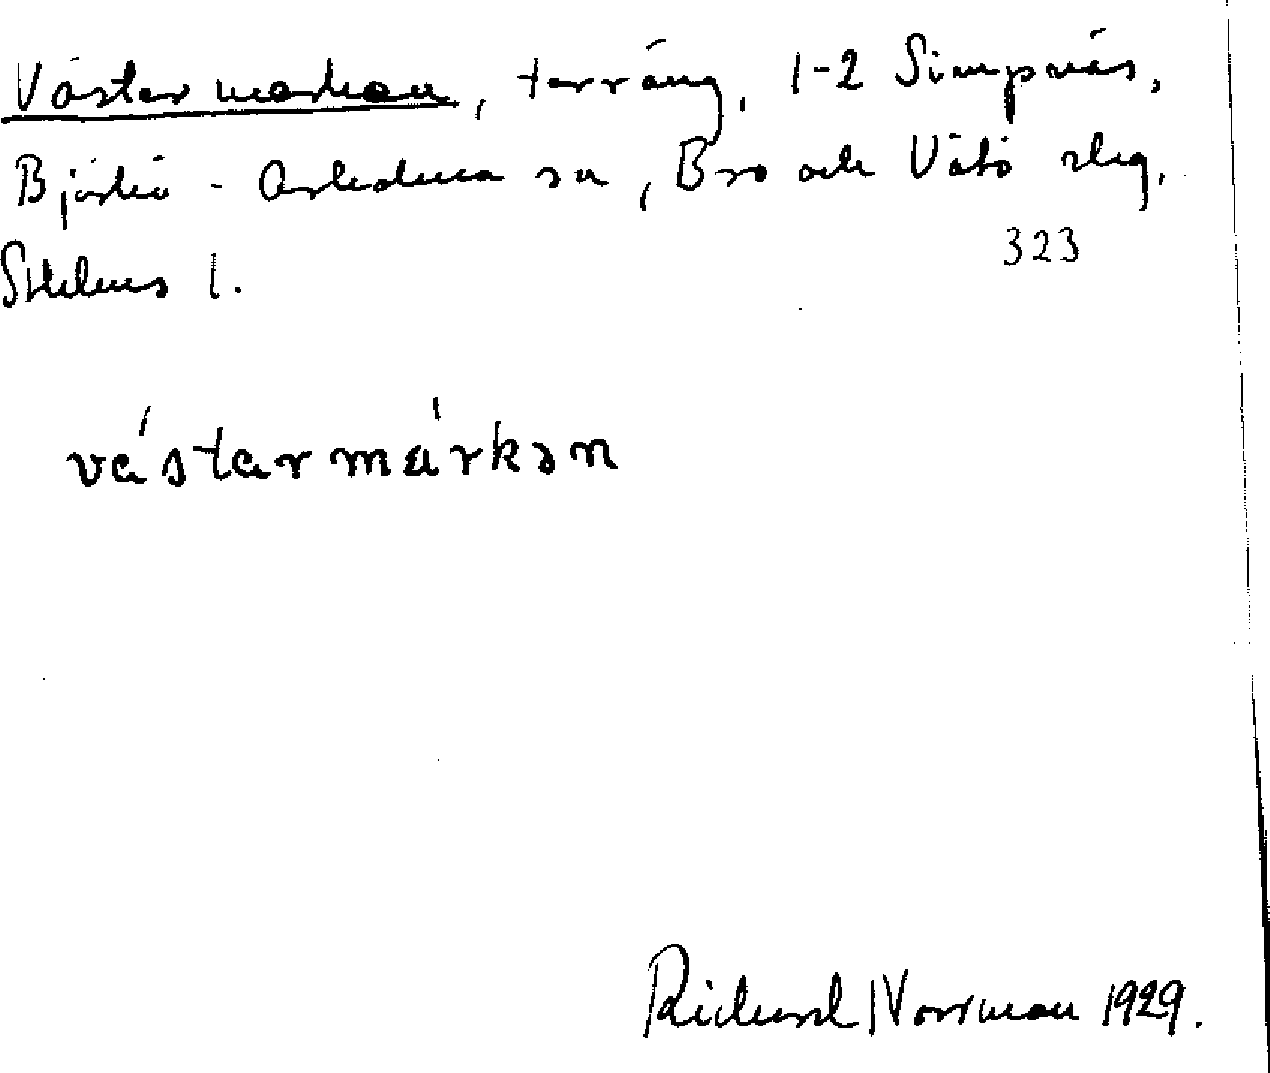 Västermarken, terräng, 1-2 Simpnäs,
Björkö-Arholma sn, Bro och Vätö slg,
Sthlms l.
323
västarmarkən
Richard Norrman 1929.